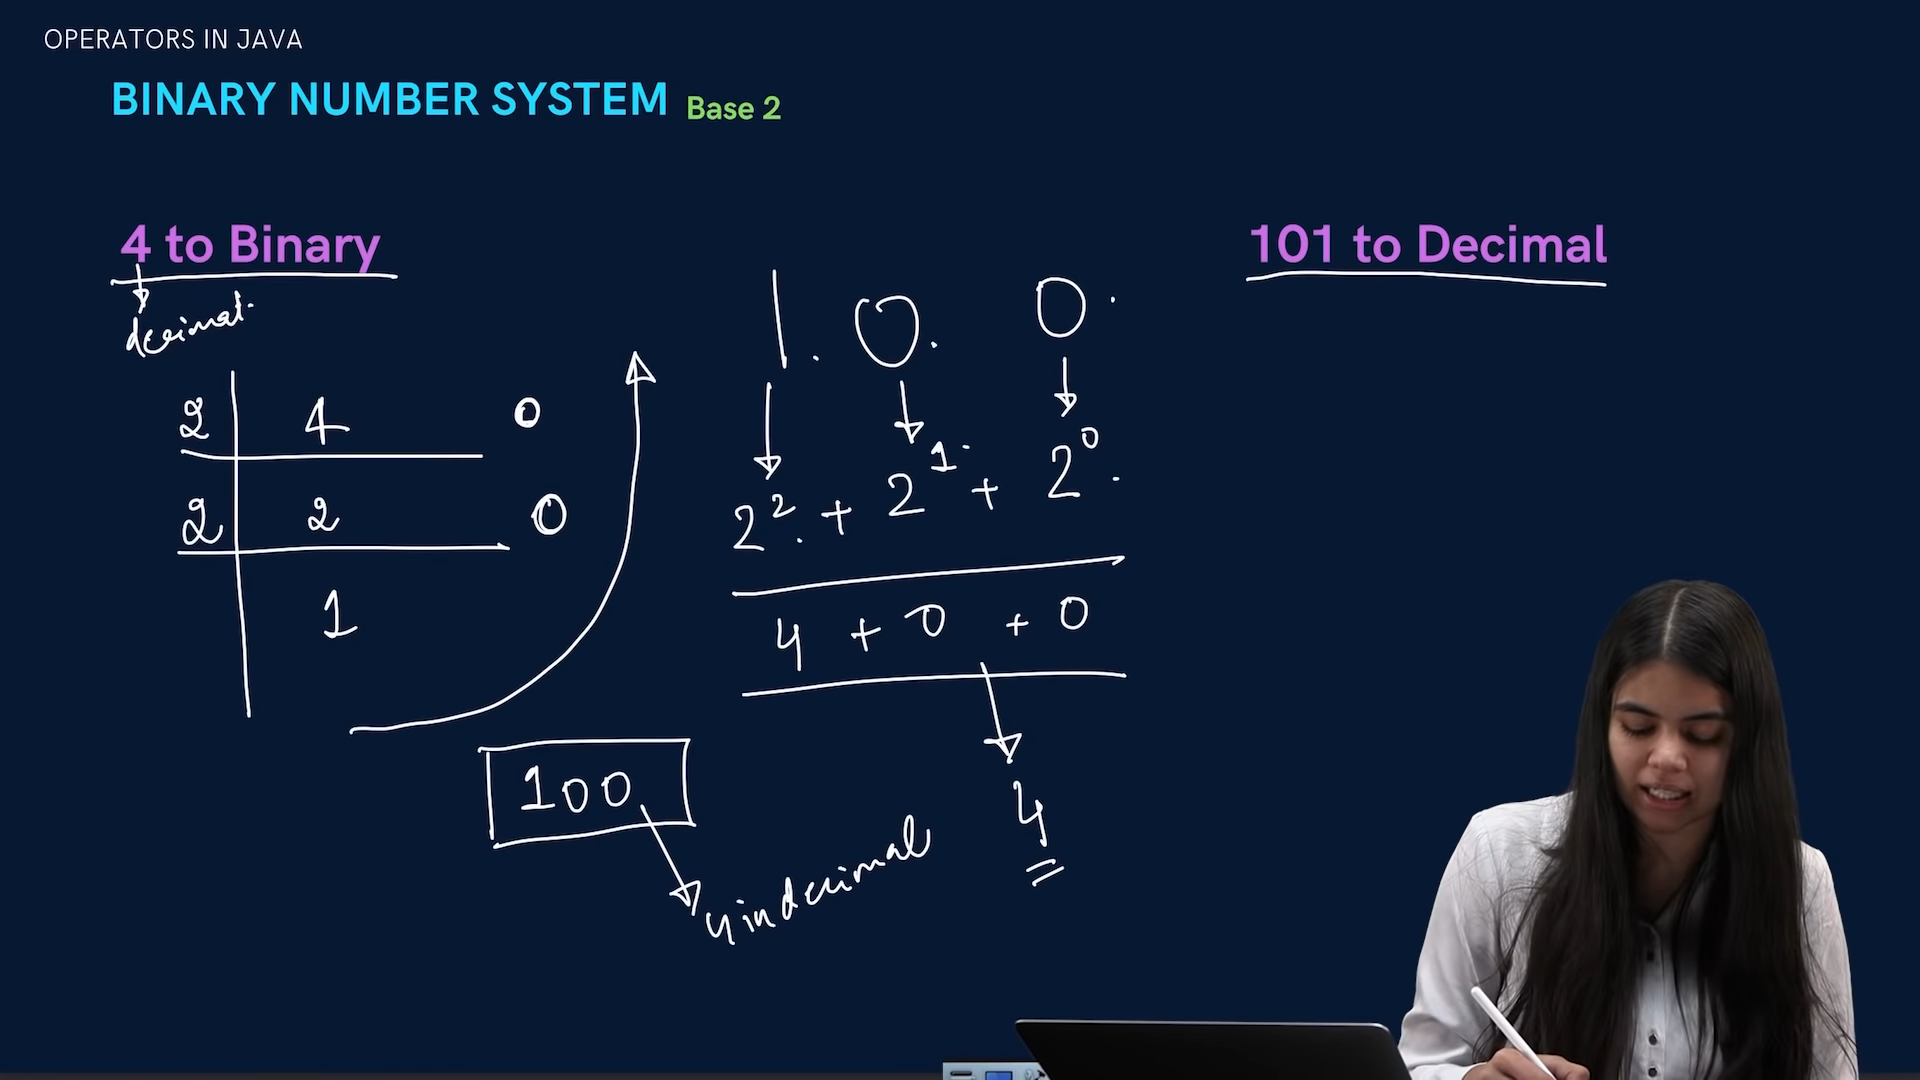 OPERATORS IN JAVA
BINARY NUMBER SYSTEM Base 2
4 to Binary
decimal.
2 4 0
2 2 0
1
100
4 in decimal
1. 0. 0.
2². + 2¹· + 2⁰.
4 + 0 + 0
4
101 to Decimal